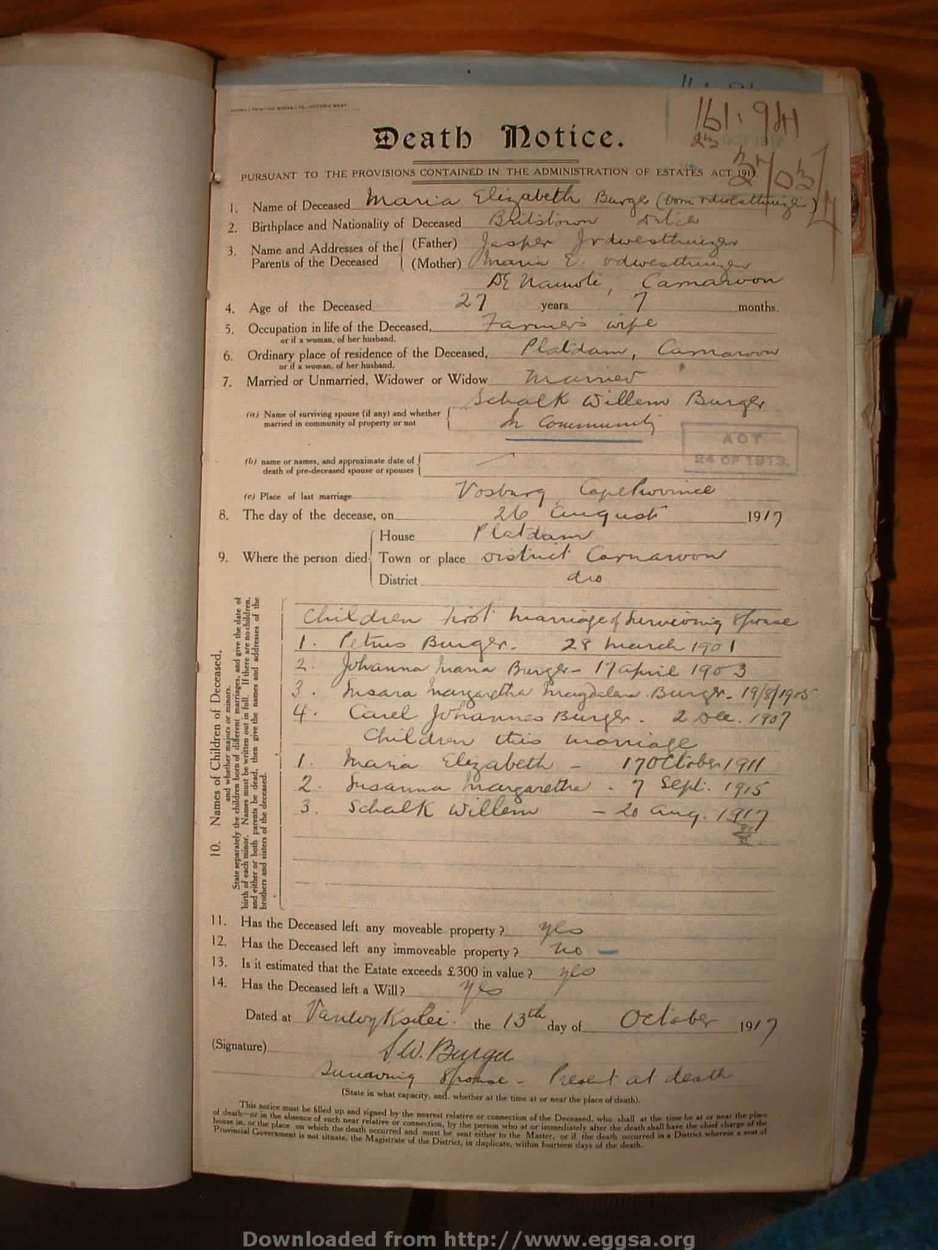 161.941
Death Notice.
PURSUANT TO THE PROVISIONS CONTAINED IN THE ADMINISTRATION OF ESTATES ACT 191
1. Name of Deceased Maria Elizabeth Burger (born vdwesthuizen)
2. Birthplace and Nationality of Deceased Britstown
3. Name and Addresses of the Parents of the Deceased (Father) Jasper J vdwesthuizen
(Mother) Maria E. vdwesthuizen
De Naauwte, Carnarvon
4. Age of the Deceased 27 years 7 months.
5. Occupation in life of the Deceased, or if a woman, of her husband. Farmer's wife
6. Ordinary place of residence of the Deceased, or if a woman, of her husband. Platdam, Carnarvon
7. Married or Unmarried, Widower or Widow Married
Schalk Willem Burger
(a) Name of surviving spouse (if any) and whether married in community of property or not In Community
ACT
24 OF 1913.
(b) name or names, and approximate date of death of pre-deceased spouse or spouses
(c) Place of last marriage Vosburg Cape Province
8. The day of the decease, on 26 August 1917
9. Where the person died House Platdam
Town or place District Carnarvon
District do
10. Names of Children of Deceased, and whether majors or minors.
State separately the children born of different marriages, and give the date of birth of each minor. Names must be written out in full. If there are no children, and either or both parents be dead, then give the names and addresses of the brothers and sisters of the deceased.
Children first marriage of surviving spouse
1. Petrus Burger. 28 March 1901
2. Johanna Maria Burger - 17 April 1903
3. Susara Margaretha Magdalena Burger - 19/8/1905
4. Carel Johannes Burger. 2 Dec. 1907
Children this marriage
1. Maria Elizabeth - 17 October 1911
2. Susanna Margaretha - 7 Sept. 1915
3. Schalk Willem - 20 Aug. 1917
11. Has the Deceased left any moveable property? yes
12. Has the Deceased left any immoveable property? no -
13. Is it estimated that the Estate exceeds £300 in value? yes
14. Has the Deceased left a Will? yes
Dated at Vanwyksvlei the 13th day of October 1917
(Signature) S.W. Burger
Surviving Spouse - Present at death
(State in what capacity, and, whether at the time at or near the place of death).
This notice must be filled up and signed by the nearest relative or connection of the Deceased, who shall at the time be at or near the place
of death—or in the absence of such near relative or connection, by the person who at or immediately after the death shall have the chief charge of the
house in, or the place on which the death occurred and must be sent either to the Master, or if the death occurred in a District wherein a seat of
Provincial Government is not situate, the Magistrate of the District, in duplicate, within fourteen days of the death.
Downloaded from http://www.eggsa.org